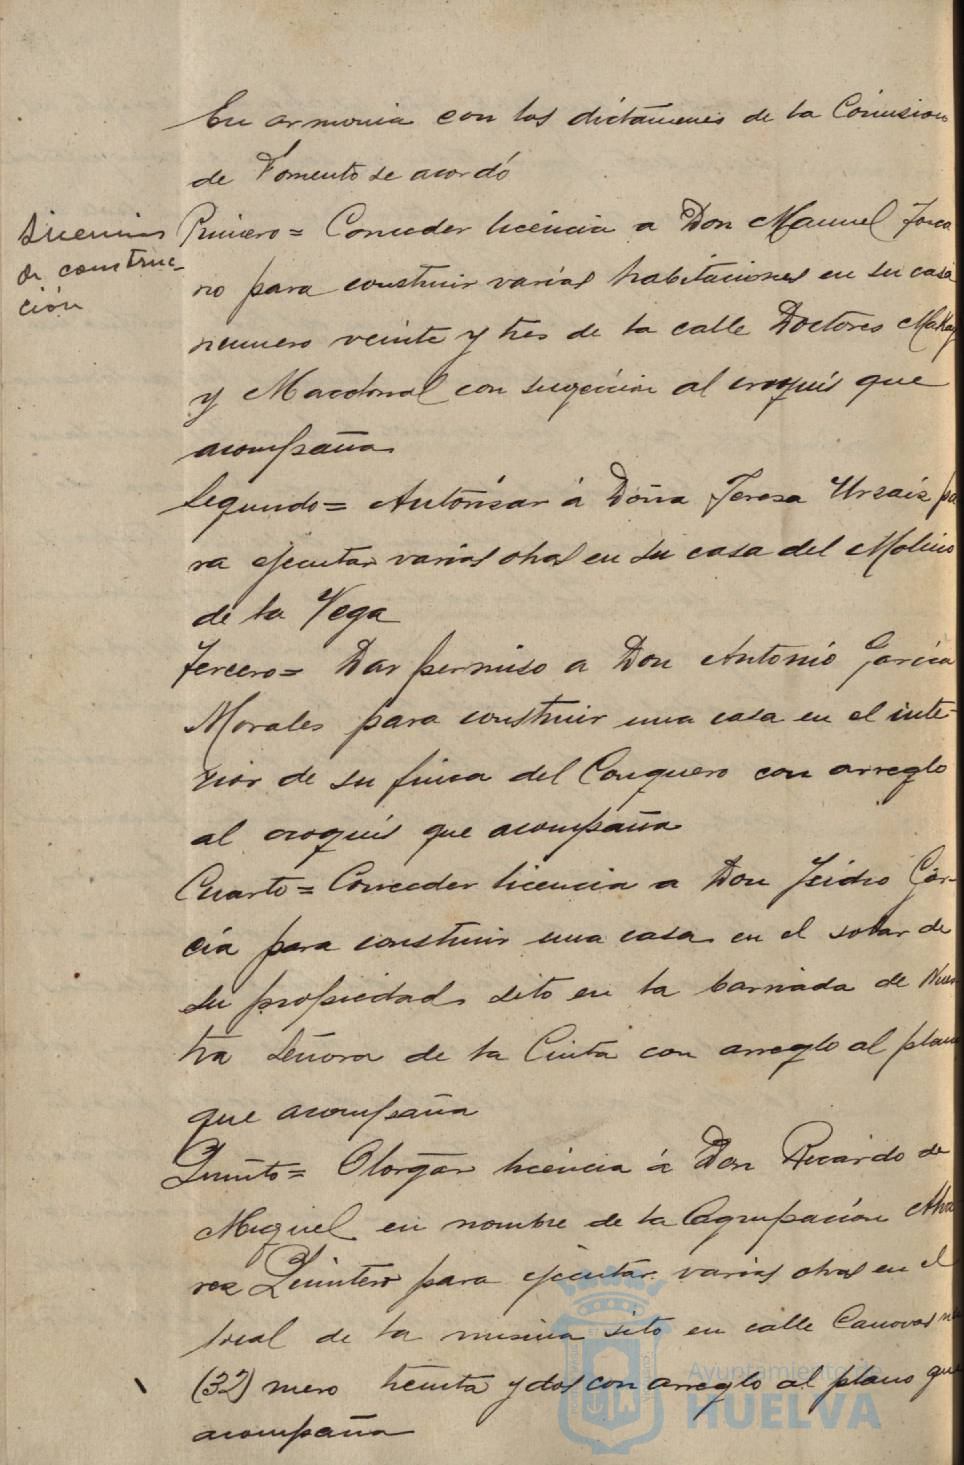 En armonia con los dictamenes de la Comision
de Fomento se acordó
Licencias
de construc-
ción
Primero = Conceder licencia a Don Manuel
no para construir varias habitaciones en su casa
numero veinte y tres de la calle Doctores Makay
y Macdonal con sugección al croquis que
acompaña
Segundo = Autorisar á Doña Teresa Ursaiz pa
ra ejecutar varias obras en su casa del Molino
de la Vega
Tercero = Dar permiso a Don Antonio Garcia
Morales para construir una casa en el inte-
rior de su finca del Conquero con arreglo
al croquis que acompaña
Cuarto = Conceder licencia a Don Isidro Gar-
cia para construir una casa en el solar de
su propiedad sito en la barriada de Nues
tra Señora de la Cinta con arreglo al plano
que acompaña
Quinto = Otorgar licencia á Don Ricardo de
Miguel en nombre de la Agrupación Alva
rez Quintero para ejecutar varias obras en el
local de la misma sito en calle Canovas nu
(32) mero treinta y dos con arreglo al plano que
acompaña
Ayuntamiento de
HUELVA